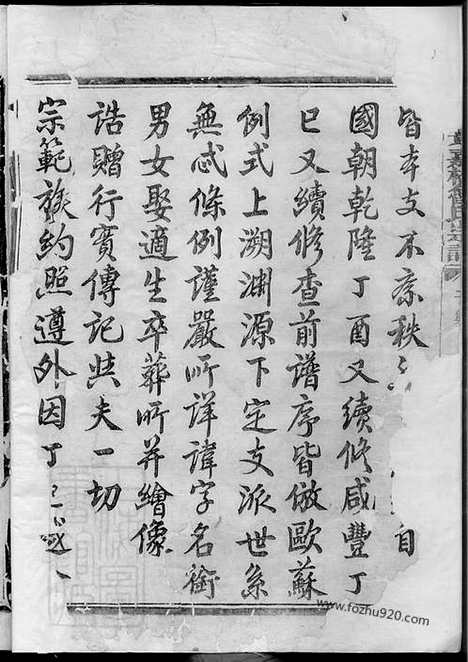 皆本支不紊秩 自
國朝乾隆丁酉又續修咸豐丁
巳又續修查前譜序皆倣歐蘇
例式上溯淵源下定支派世系
無忒條例謹嚴所詳諱字名銜
男女娶適生卒葬所并繪像
誥贈行實傳記與夫一切
宗範族約照遵外因丁
www.fozhu920.com